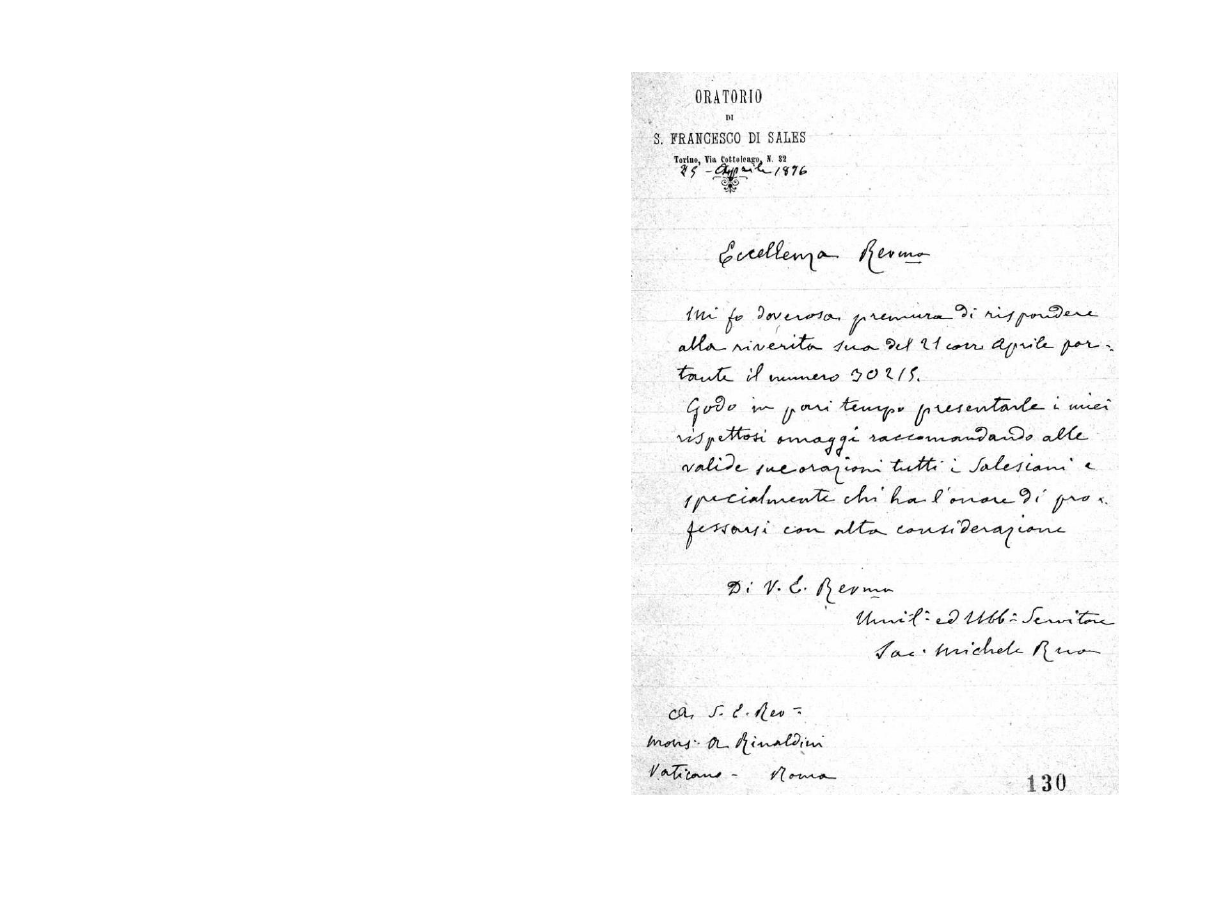 ORATORIO
DI
S. FRANCESCO DI SALES
Torino, Via Cottolengo, N. 32
25 - Aprile 1896
Eccellenza Revma
Mi fo doverosa premura di rispondere
alla riverita sua del 21 corr Aprile por-
tante il numero 30215.
Godo in pari tempo presentarle i miei
rispettosi omaggi raccomandando alle
valide sue orazioni tutti i Salesiani e
specialmente chi ha l'onore di pro-
fessarsi con alta considerazione
Di V. E. Revma
Umil. ed Ubb. Servitore
Sac. Michele Rua
A S. E. Rev
Mons. A Rinaldini
Vaticano - Roma
130